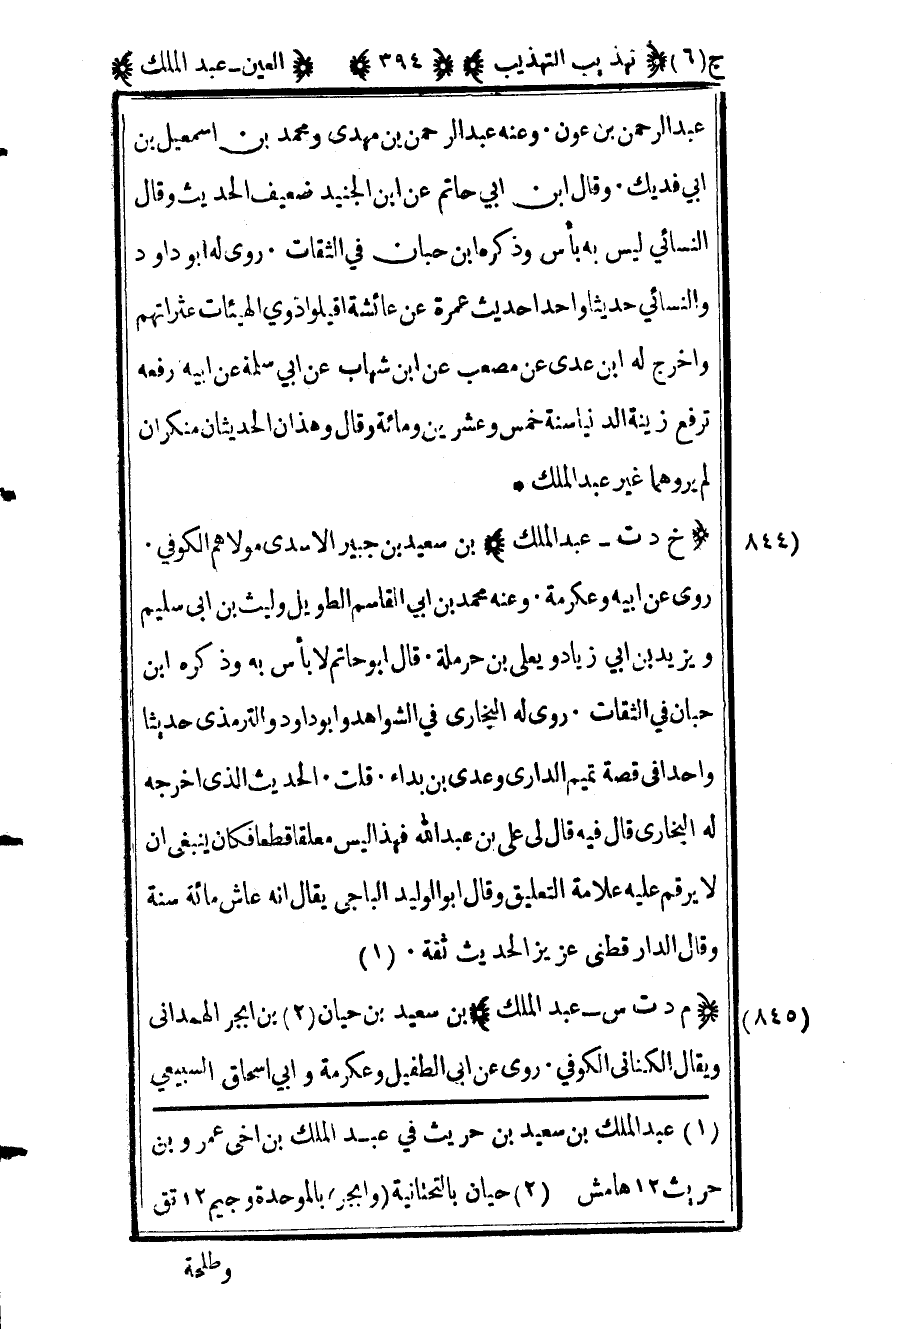 ج(٦) ﴿ تهذيب التهذيب ﴾ ﴿ ٣٩٤ ﴾ ﴿ العين ـ عبد الملك ﴾
عبدالرحمن بن عون · وعنه عبدالرحمن بن مهدى ومحمد بن اسمعيل بن
ابي فديك · وقال ابن ابي حاتم عن ابن الجنيد ضعيف الحديث وقال
النسائي ليس به بأس وذكره ابن حبان في الثقات · روى له ابو داود
والنسائي حديثا واحدا حديث عمرة عن عائشة اقيلوا ذوي الهيئات عثراتهم
واخرج له ابن عدى عن مصعب عن ابن شهاب عن ابي سلمة عن ابيه رفعه
ترفع زينة الدنيا سنة خمس وعشرين ومائة وقال وهذان الحديثان منكران
لم يروهما غير عبد الملك •
(٨٤٤) ﴿ خ د ت ـ عبدالملك ﴾ بن سعيد بن جبير الاسدى مولاهم الكوفي ·
روى عن ابيه وعكرمة · وعنه محمد بن ابي القاسم الطويل وليث بن ابى سليم
ويزيد بن ابي زياد ويعلى بن حرملة · قال ابو حاتم لا بأس به وذكره ابن
حبان في الثقات · روى له البخارى في الشواهد وابو داود والترمذى حديثا
واحدا فى قصة تميم الدارى وعدى بن بداء · قلت · الحديث الذى اخرجه
له البخارى قال فيه قال لى على بن عبد الله فهذا ليس معلقا قطعا فكان ينبغى ان
لا يرقم عليه علامة التعليق وقال ابو الوليد الباجى يقال انه عاش مائة سنة
وقال الدار قطنى عزيز الحديث ثقة · (١)
(٨٤٥) ﴿ م د ت س ـ عبد الملك ﴾ بن سعيد بن حيان (٢) بن ابجر الهمدانى
ويقال الكنانى الكوفي · روى عن ابى الطفيل وعكرمة و ابي اسحاق السبيعي
(١) عبدالملك بن سعيد بن حريث في عبد الملك بن اخى عمر و بن
حريث ١٢ هامش (٢) حيان بالتحتانية (وابجر) بالموحدة وجيم ١٢ تق
وطلحة